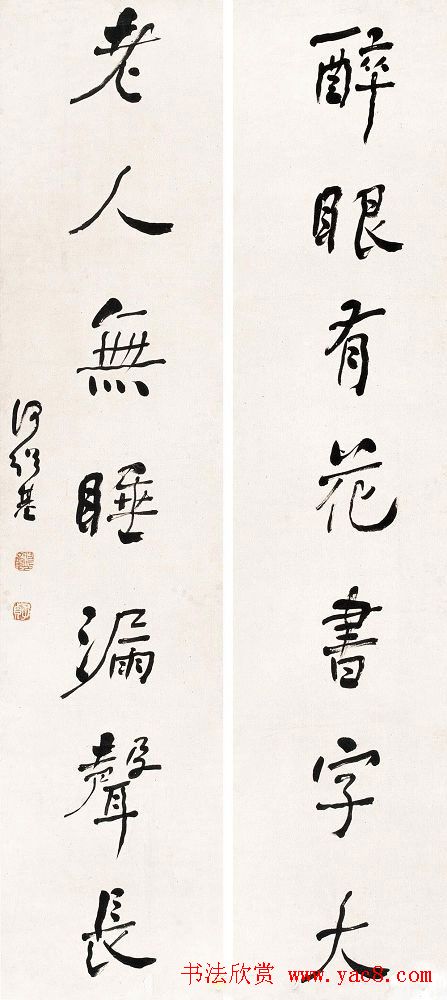 醉眼有花書字大
老人無睡漏聲長
何紹基
书法欣赏 www.yac8.com